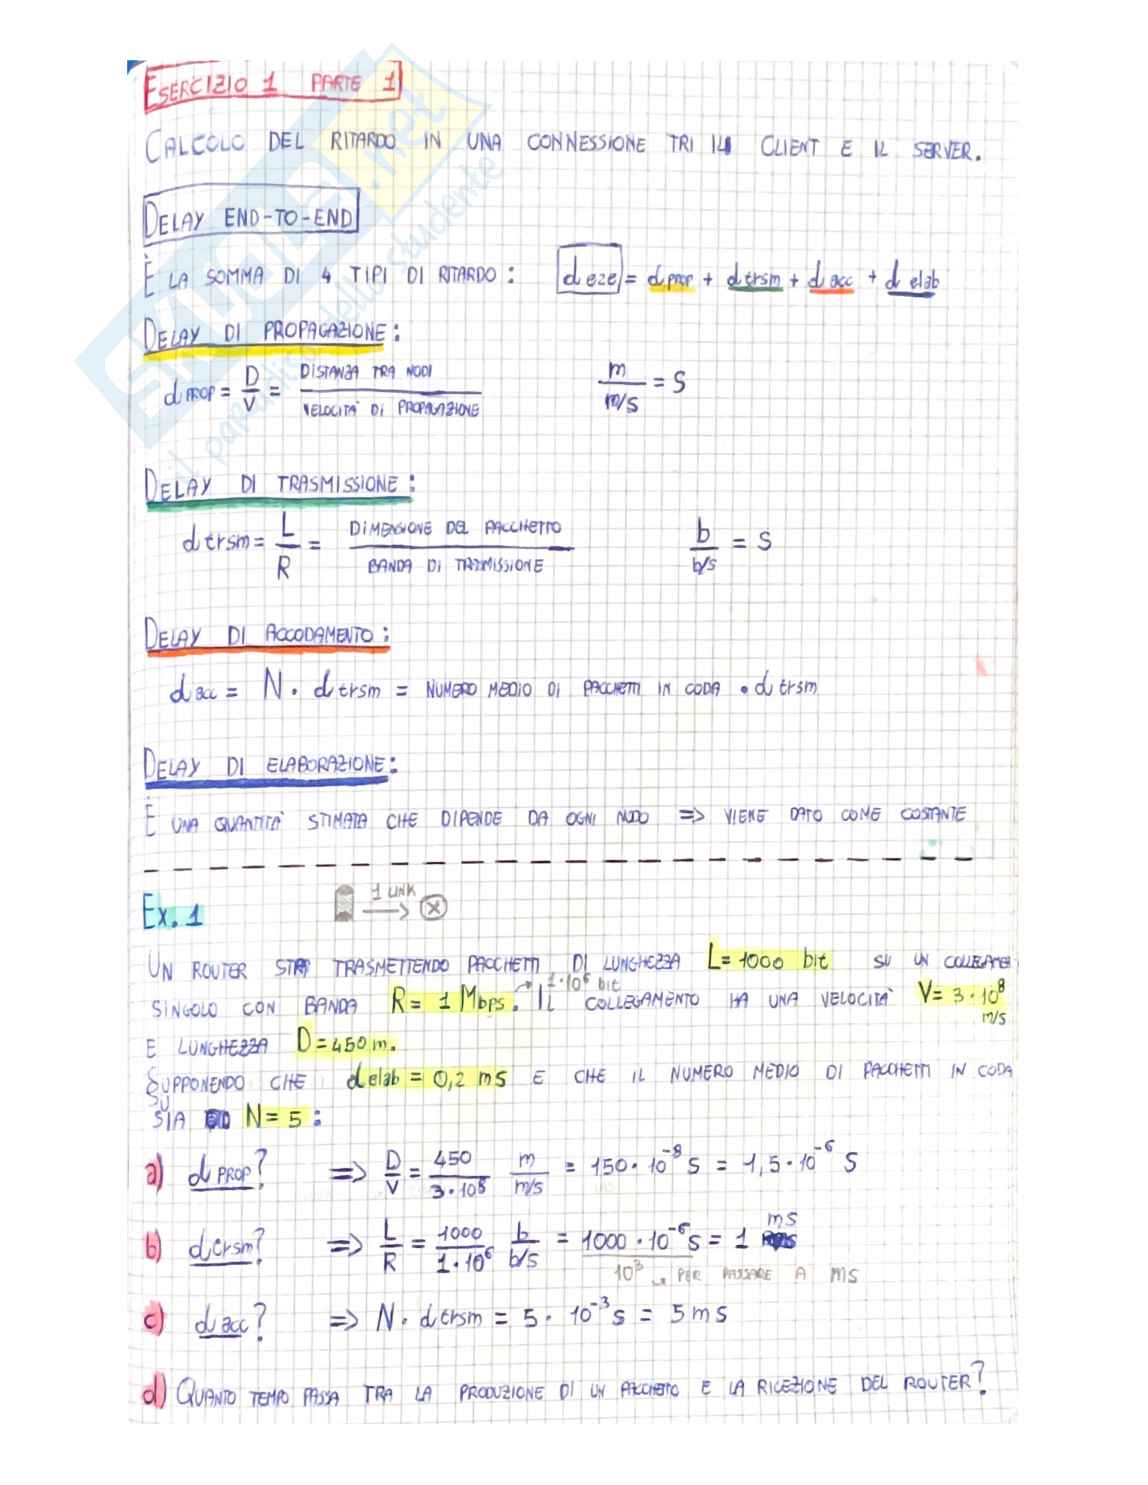 ESERCIZIO 1 PARTE 1
CALCOLO DEL RITARDO IN UNA CONNESSIONE TRI IL CLIENT E IL SERVER.
DELAY END-TO-END
È LA SOMMA DI 4 TIPI DI RITARDO: d e2e = d PROP + d trsm + d acc + d elab
DELAY DI PROPAGAZIONE:
d PROP = D/V = DISTANZA TRA NODI / VELOCITA' DI PROPAGAZIONE m / m/s = S
DELAY DI TRASMISSIONE:
d trsm = L/R = DIMENSIONE DEL PACCHETTO / BANDA DI TRASMISSIONE b / b/s = S
DELAY DI ACCODAMENTO:
d acc = N · d trsm = NUMERO MEDIO DI PACCHETTI IN CODA · d trsm
DELAY DI ELABORAZIONE:
È UNA QUANTITA' STIMATA CHE DIPENDE DA OGNI NODO => VIENE DATO COME COSTANTE
Ex. 1 1 LINK
UN ROUTER STA TRASMETTENDO PACCHETTI DI LUNGHEZZA L = 1000 bit SU UN
1·10⁶ bit
SINGOLO CON BANDA R = 1 Mbps. IL COLLEGAMENTO HA UNA VELOCITA' V = 3·10⁸ m/s
E LUNGHEZZA D = 450 m.
SUPPONENDO CHE d elab = 0,2 ms E CHE IL NUMERO MEDIO DI PACCHETTI IN CODA
SU
SIA N = 5 :
a) d PROP? => D/V = 450 / 3·10⁸ m / m/s = 150·10⁻⁸ S = 1,5·10⁻⁶ S
b) d trsm? => L/R = 1000 / 1·10⁶ b / b/s = 1000·10⁻⁶ S = 1 ms
10³ PER PASSARE A ms
c) d acc? => N · d trsm = 5 · 10⁻³ S = 5 ms
d) QUANTO TEMPO PASSA TRA LA PRODUZIONE DI UN PACCHETTO E LA RICEZIONE DEL ROUTER?
skuola.net
il paradiso dello studente